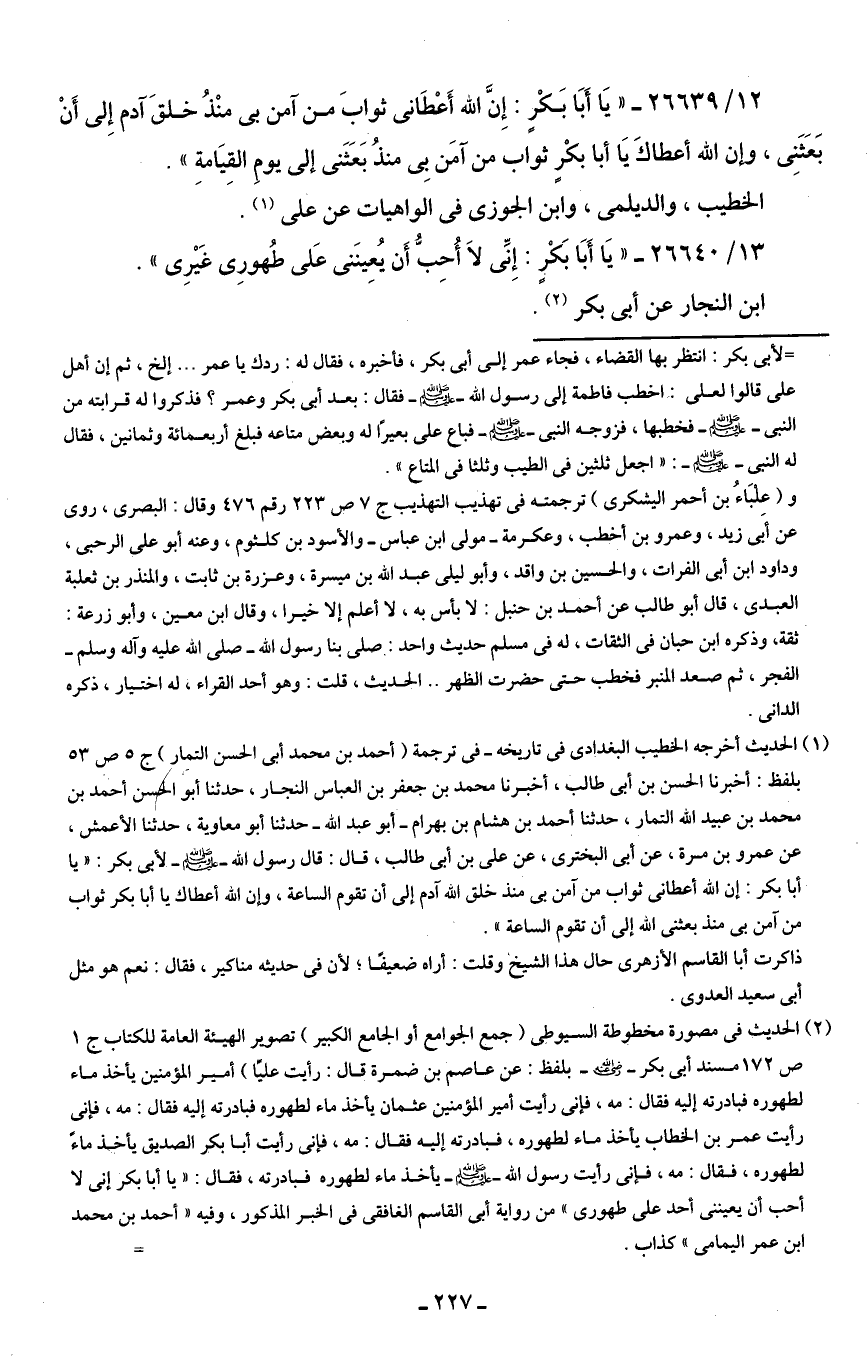 ٢٦٦٣٩/١٢ ـ « يَا أَبَا بَكْرٍ : إِنَّ الله أَعْطَانى ثوابَ مـن آمن بى منْذُ خـلقَ آدم إلى أَنْ
بَعَثَنِى ، وإن الله أعطاكَ يَا أبا بكْرٍ ثواب من آمَن بِى منذُ بَعَثَنى إلى يومِ القِيَامةِ » .
الخطيب ، والديلمى ، وابن الجوزى فى الواهيات عن على (١) .
٢٦٦٤٠/١٣ ـ « يَا أَبَا بَكْرٍ : إِنِّى لاَ أُحِبُّ أَن يُعِينَنى عَلى طُهورِى غَيْرِى » .
ابن النجار عن أبى بكر (٢) .
=لأبى بكر : انتظر بها القضاء ، فجاء عمر إلـى أبى بكر ، فأخبره ، فقال له : ردك يا عمر ... إلخ ، ثم إن أهل
على قالوا لعـلى : اخطب فاطمة إلى رسـول الله ـ ﷺ ـ فقال : بعـد أبى بكر وعمـر ؟ فذكروا له قـرابته من
النبى ـ ﷺ ـ فخطبها ، فزوجـه النبى ـ ﷺ ـ فباع على بعيرًا له وبعض متاعه فبلغ أربعـمائة وثمانين ، فقال
له النبى ـ ﷺ ـ : « اجعل ثلثين فى الطيب وثلثا فى المتاع » .
و ( عِلْبَاءُ بن أحمر اليشكرى ) ترجمتـه فى تهذيب التهذيب ج ٧ ص ٢٢٣ رقم ٤٧٦ وقال : البصرى ، روى
عن أبى زيد ، وعمرو بن أخطب ، وعكـرمة ـ مولى ابن عباس ـ والأسود بن كلـثوم ، وعنه أبو على الرحبى ،
وداود ابن أبى الفرات ، والحسين بن واقد ، وأبو ليلى عبـد الله بن ميسرة ، وعـزرة بن ثابت ، والمنذر بن ثعلبة
العبـدى ، قال أبو طالب عن أحمـد بن حنبل : لا بأس به ، لا أعلم إلا خيـرا ، وقال ابن معـين ، وأبو زرعة :
ثقة، وذكره ابن حبان فى الثقات ، له فى مسلم حديث واحد : صلى بنا رسول الله ـ صلى الله عليه وآله وسلم ـ
الفجر ، ثم صـعد المنبر فخطب حتـى حضرت الظهر .. الحـديث ، قلت : وهو أحد القراء ، له اختـيار ، ذكره
الدانى .
(١) الحديث أخرجه الخطيب البغدادى فى تاريخه ـ فى ترجمة ( أحمد بن محمد أبى الحسن التمار ) ج ٥ ص ٥٣
بلفظ : أخبرنا الحسن بن أبى طالب ، أخبـرنا محمد بن جعفر بن العباس النجـار ، حدثنا أبو الحسن أحمد بن
محمد بن عبيد الله التمار ، حدثنا أحمد بن هشام بن بهرام ـ أبو عبد الله ـ حدثنا أبو معاوية ، حدثنا الأعمش ،
عن عمرو بن مـرة ، عن أبى البخترى ، عن على بن أبى طالب ، قـال : قال رسول الله ـ ﷺ ـ لأبى بكر : « يا
أبا بكر : إن الله أعطانى ثواب من آمن بى منذ خلق الله آدم إلى أن تقوم الساعة ، وإن الله أعطاك يا أبا بكر ثواب
من آمن بى منذ بعثنى الله إلى أن تقوم الساعة » .
ذاكرت أبا القاسم الأزهرى حال هذا الشيخ وقلت : أراه ضعيفًا ؛ لأن فى حديثه مناكير ، فقال : نعم هو مثل
أبى سعيد العدوى .
(٢) الحديث فى مصورة مخطوطة السيوطى ( جمع الجوامع أو الجامع الكبير ) تصوير الهيئة العامة للكتاب ج ١
ص ١٧٢ مـسند أبى بكر ـ رضي الله عنه ـ بلفظ : عن عـاصم بن ضمـرة قـال : رأيت عليًا ) أمـير المؤمنين يأخذ مـاء
لطهوره فبادرته إليه فقال : مه ، فإنى رأيت أمير المؤمنين عثـمان يأخذ ماء لطهوره فبادرته إليه فقال : مه ، فإنى
رأيت عمـر بن الخطاب يأخذ مـاء لطهوره ، فـبادرته إليـه فقـال : مه ، فإنى رأيت أبـا بكر الصديق يأخـذ ماءً
لطهوره ، فـقال : مه ، فـإنى رأيت رسول الله ـ ﷺ ـ يأخذ ماء لطهوره فبـادرته ، فقـال : « يا أبا بكر إنى لا
أحب أن يعيننى أحد على طهورى » من رواية أبى القاسم الغافقى فى الخبـر المذكور ، وفيه « أحمد بن محمد
ابن عمر اليمامى » كذاب . =
ـ ٢٢٧ ـ